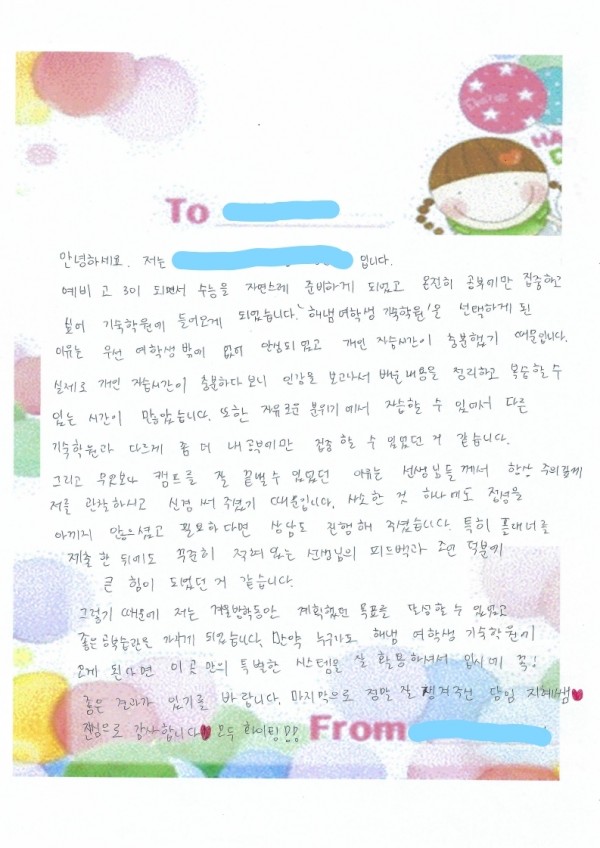 To
안녕하세요. 저는 입니다.
예비 고3이 되면서 수능을 자연스레 준비하게 되었고 온전히 공부에만 집중하고
싶어 기숙학원에 들어오게 되었습니다. '해냄여학생 기숙학원'을 선택하게 된
이유는 우선 여학생 밖에 없어 안심되었고 개인 자습시간이 충분했기 때문입니다.
실제로 개인 자습시간이 충분하다 보니 인강을 보고나서 배운내용을 정리하고 복습할 수
있는 시간이 많았습니다. 또한 자유로운 분위기에서 자습할 수 있어서 다른
기숙학원과 다르게 좀 더 내 공부에만 집중할 수 있었던 거 같습니다.
그리고 무엇보다 캠프를 잘 끝낼 수 있었던 이유는 선생님들께서 항상 주의깊게
저를 관찰하시고 신경 써 주셨기 때문입니다. 사소한 것 하나에도 신경을
아끼지 않으셨고 필요하다면 상담도 진행해 주셨습니다. 특히 플래너를
제출한 뒤에도 꾸준히 적혀 있는 선생님의 피드백과 조언 덕분에
큰 힘이 되었던 거 같습니다.
그렇기 때문에 저는 겨울방학동안 계획했던 목표를 달성할 수 있었고
좋은 공부습관을 가지게 되었습니다. 만약 누군가도 해냄 여학생 기숙학원에
오게 된다면 이곳 만의 특별한 시스템을 잘 활용하셔서 입시에 꼭!
좋은 결과가 있기를 바랍니다. 마지막으로 정말 잘 챙겨주신 담임 지혜쌤♥
진심으로 감사합니다♥ 모두 화이팅!!
From